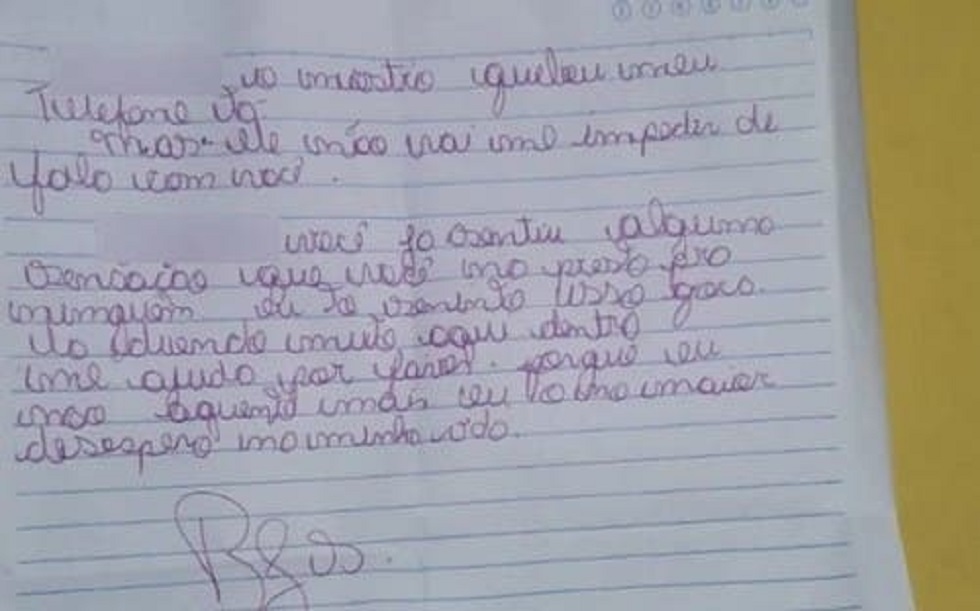 o mostro quebeu meu
Telefone
mas ele não vai me impedir de
falo com você .
você ja sentiu alguma
sensação que você no presta pro
ninguém eu to sentindo isso gora.
to duendo muito aqui dentro
me ajuda por favor. porque eu
nao aguento mais eu to no maior
desespero na minha vida.
Bjos.